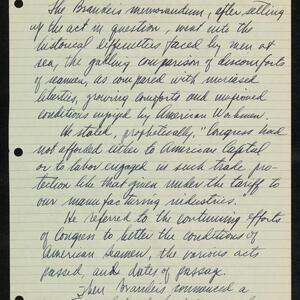 The Brandeis memorandum, after setting
up the act in question, went into the
historical difficulties faced by men at
sea, the galling comparison of discomforts
of seamen, as compared with increased
liberties, growing comforts and improved
conditions enjoyed by American Workmen.
He stated, prophetically, "Congress had
not afforded either to American Capital
or to labor engaged in such trade pro-
tection like that given under the tariff to
our manufacturing industries."
He referred to the continuing efforts
of Congress to better the conditions of
American seamen, the various acts
passed, and dates of passage.
Then Brandeis announced a